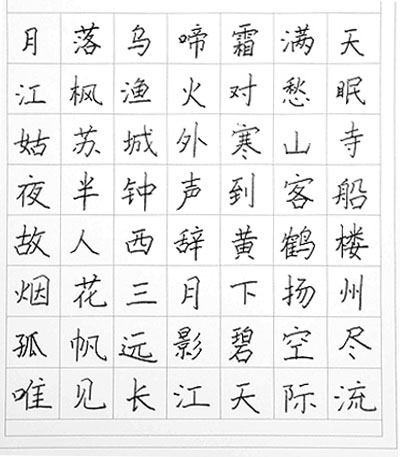 月落乌啼霜满天
江枫渔火对愁眠
姑苏城外寒山寺
夜半钟声到客船
故人西辞黄鹤楼
烟花三月下扬州
孤帆远影碧空尽
唯见长江天际流